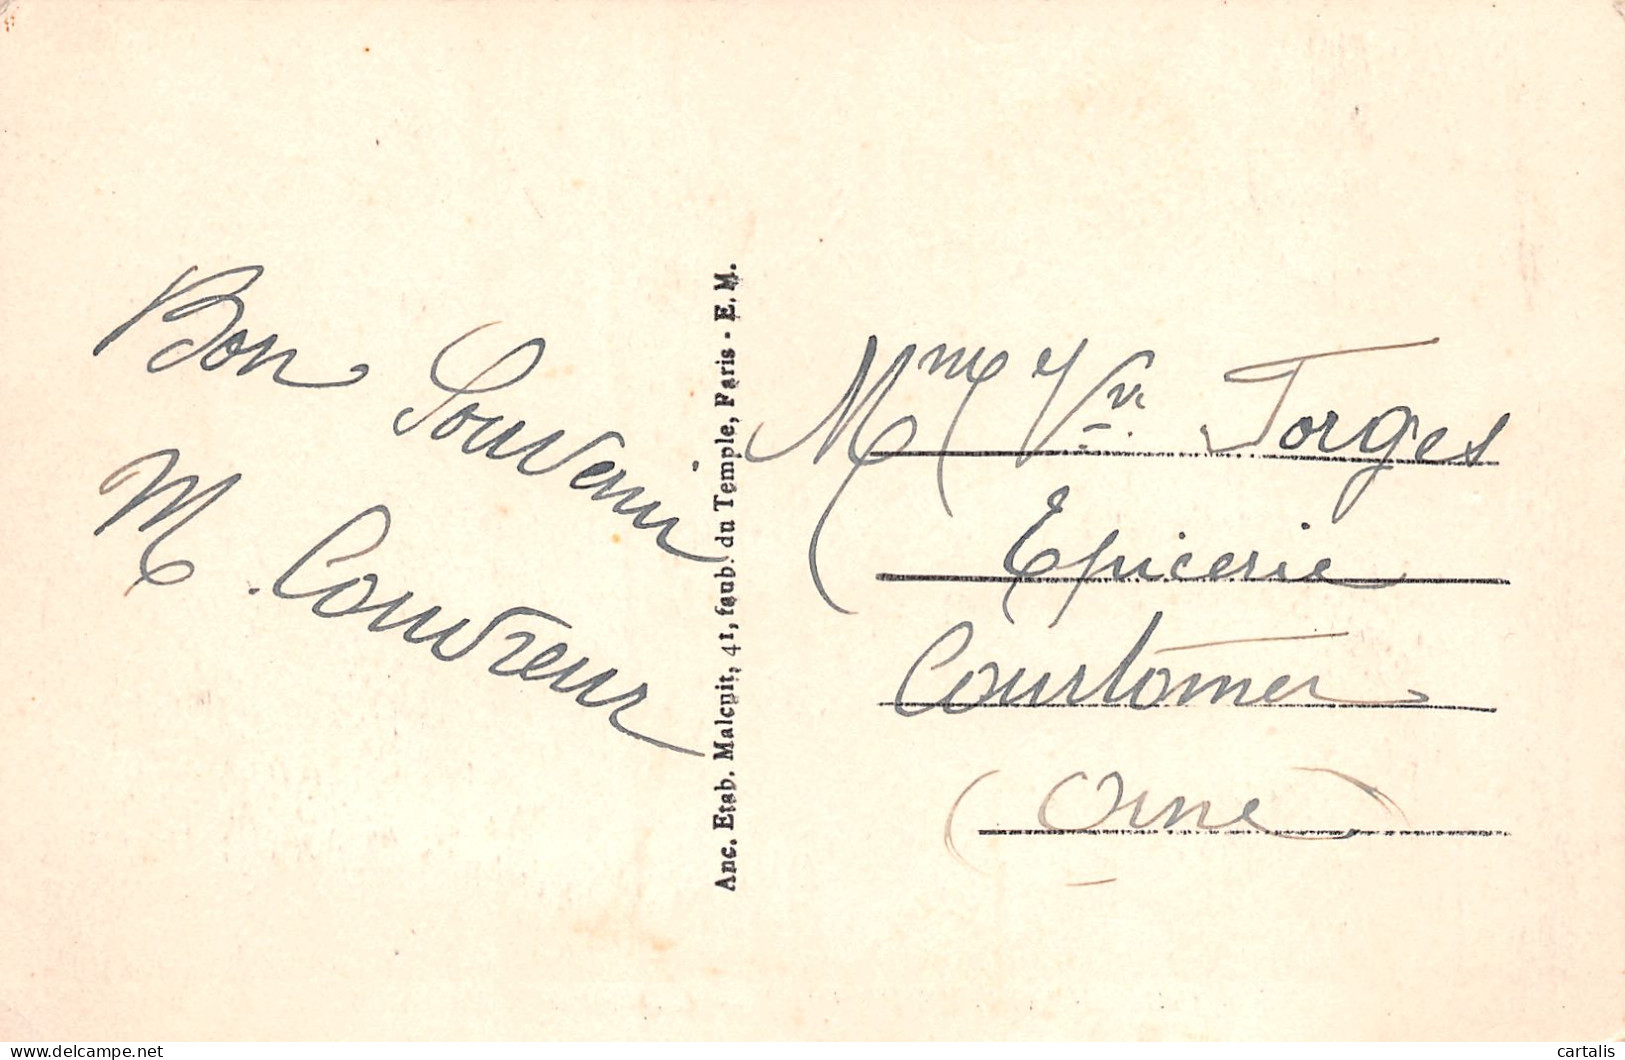 Bon Souvenir
M. Couvreur
Anc. Etab. Malcuit, 41, faub. du Temple, Paris - E. M.
Mme Vve Forges
Epicerie
Courtomer
(Orne)
www.delcampe.net
cartalis